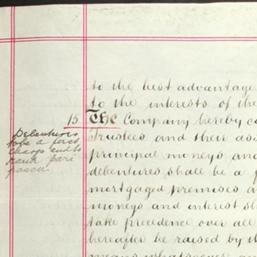 to the best advantage
to the interests of the
15 The Company hereby co
Trustees and their as
principal moneys and
debentures shall be a f
mortgaged premises a
moneys and interest sh
take precedence over all
hereafter be raised by th
means whatsoever an
Debentures
to be a first
charge and to
rank pari
passu